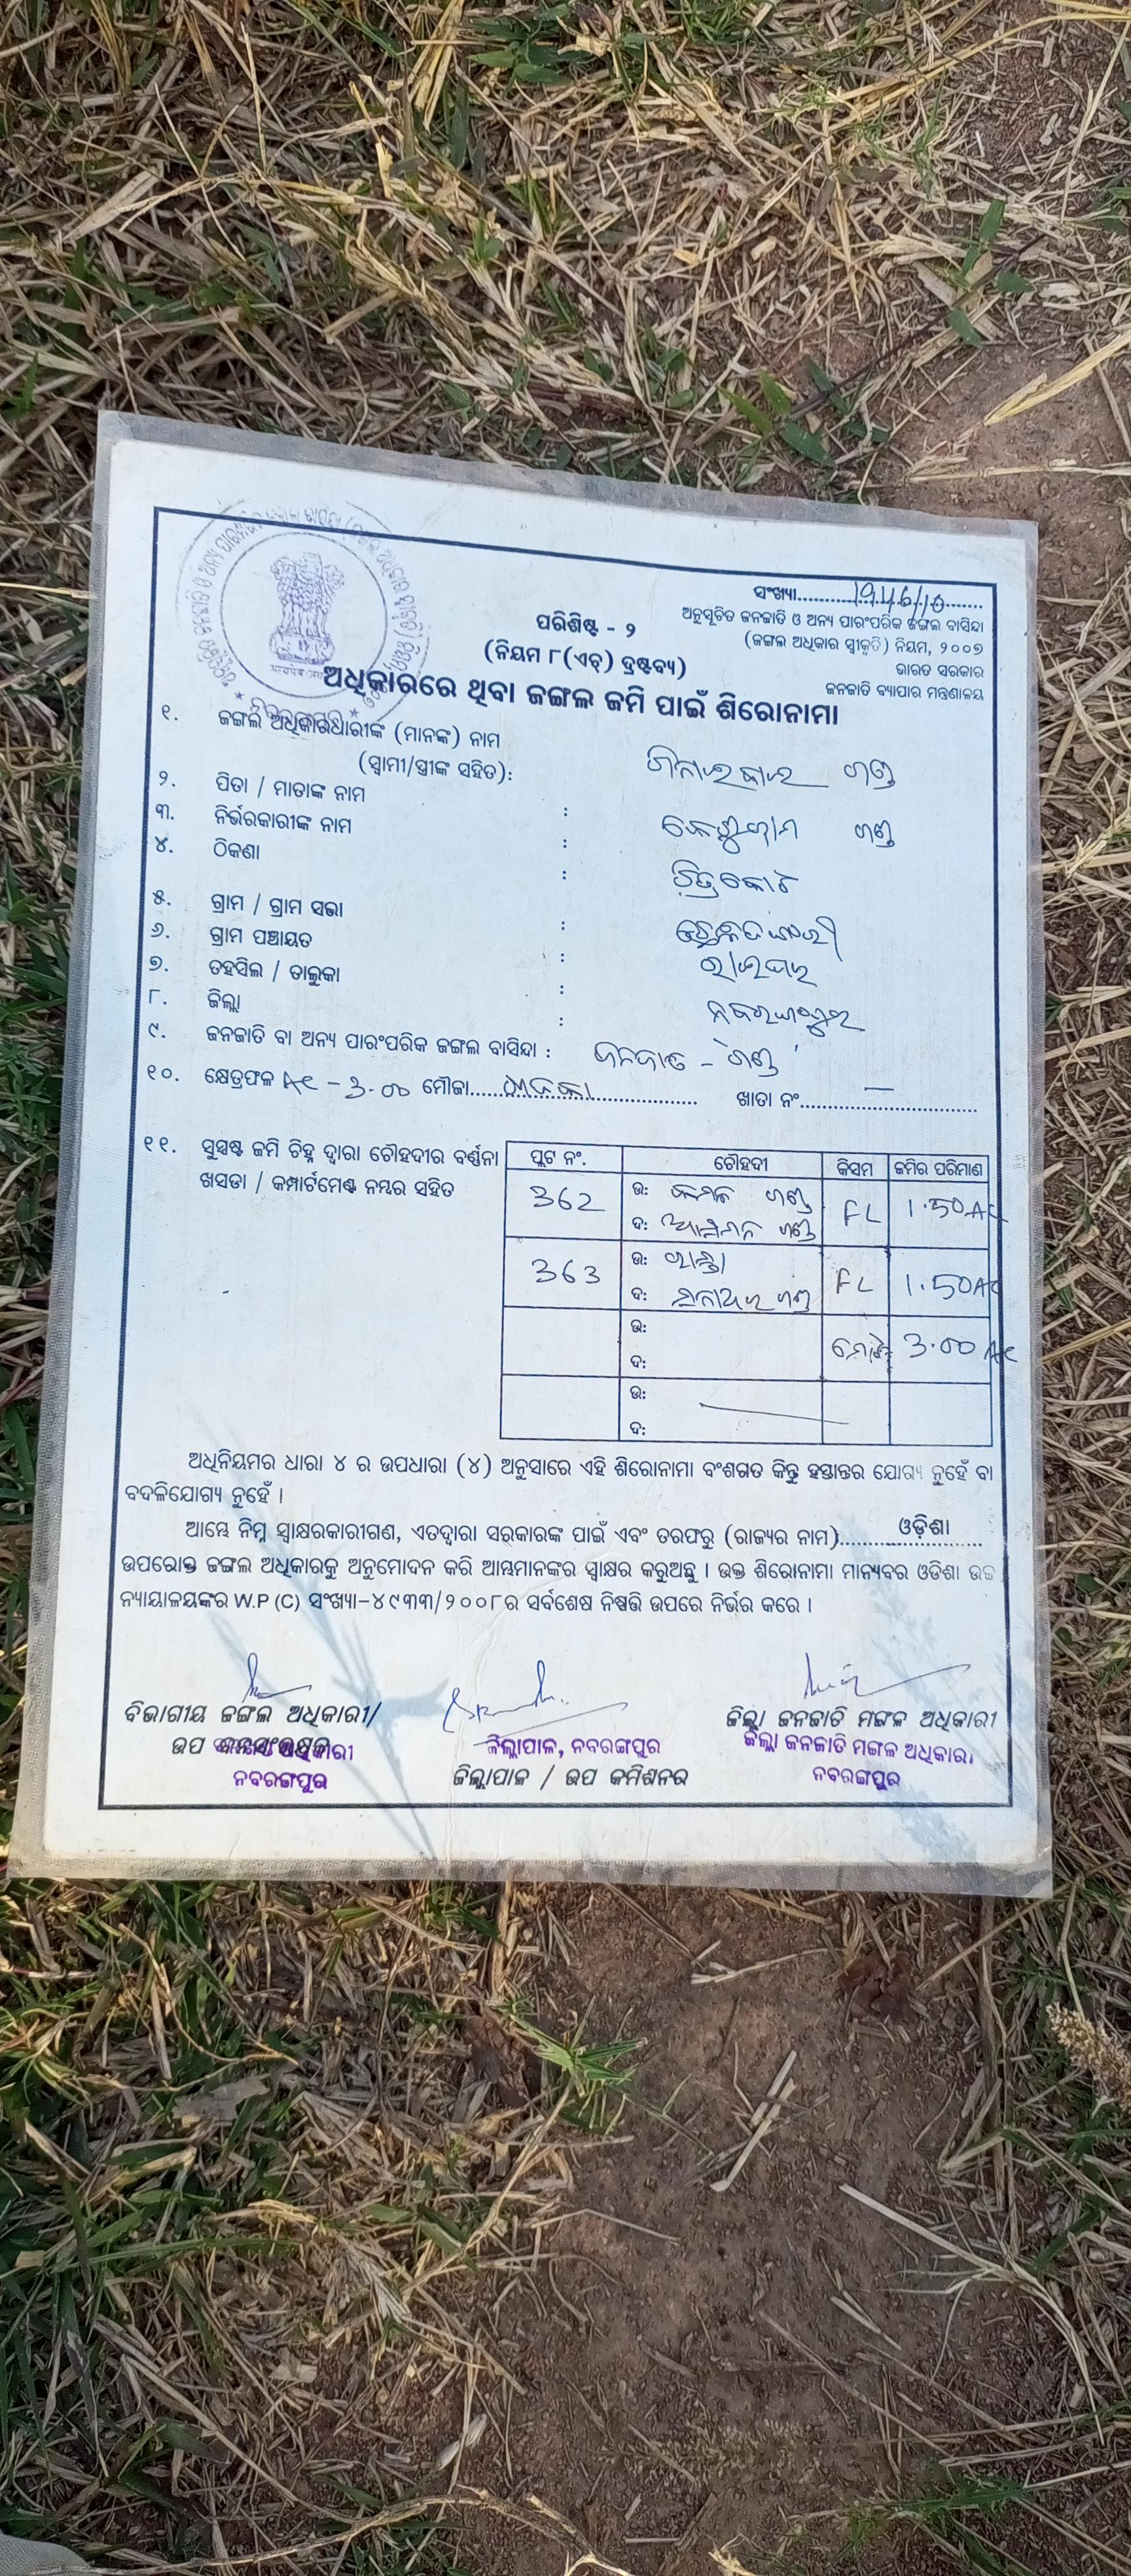 ସଂଖ୍ୟା............1946/10.........
ଅନୁସୂଚିତ ଜନଜାତି ଓ ଅନ୍ୟ ପାରଂପରିକ ଜଙ୍ଗଲ ବାସିନ୍ଦା
(ଜଙ୍ଗଲ ଅଧିକାର ସ୍ୱୀକୃତି) ନିୟମ, ୨୦୦୭
ଭାରତ ସରକାର
ଜନଜାତି ବ୍ୟାପାର ମନ୍ତ୍ରଣାଳୟ
ପରିଶିଷ୍ଟ - ୨
(ନିୟମ ୮(ଏଚ୍) ଦ୍ରଷ୍ଟବ୍ୟ)
ଅଧିକାରରେ ଥିବା ଜଙ୍ଗଲ ଜମି ପାଇଁ ଶିରୋନାମା
୧. ଜଙ୍ଗଲ ଅଧିକାରଧାରୀଙ୍କ (ମାନଙ୍କ) ନାମ
(ସ୍ୱାମୀ/ସ୍ତ୍ରୀଙ୍କ ସହିତ): ଗଣ୍ଡ
୨. ପିତା / ମାତାଙ୍କ ନାମ : ଗଣ୍ଡ
୩. ନିର୍ଭରକାରୀଙ୍କ ନାମ :
୪. ଠିକଣା : ଚିତ୍ରକୋଟ
୫. ଗ୍ରାମ / ଗ୍ରାମ ସଭା :
୬. ଗ୍ରାମ ପଞ୍ଚାୟତ :
୭. ତହସିଲ / ତାଲୁକା : ରାଇଘର
୮. ଜିଲ୍ଲା : ନବରଙ୍ଗପୁର
୯. ଜନଜାତି ବା ଅନ୍ୟ ପାରଂପରିକ ଜଙ୍ଗଲ ବାସିନ୍ଦା : ଜନଜାତି - ଗଣ୍ଡ
୧୦. କ୍ଷେତ୍ରଫଳ AC - 3.00 ମୌଜା.................... ଖାତା ନଂ.......—.......
୧୧. ସୁସ୍ପଷ୍ଟ ଜମି ଚିହ୍ନ ଦ୍ୱାରା ଚୌହଦୀର ବର୍ଣ୍ଣନା
ଖସଡା / କମ୍ପାର୍ଟମେଣ୍ଟ ନମ୍ବର ସହିତ
ପ୍ଲଟ ନଂ. ଚୌହଦୀ କିସମ ଜମିର ପରିମାଣ
362 ଉ: ଗଣ୍ଡ FL 1.50 AC
ଦ: ଗଣ୍ଡ
363 ଉ: ରାସ୍ତା FL 1.50 AC
ଦ: ଗଣ୍ଡ
ଉ: ମୋଟ 3.00 AC
ଦ:
ଉ:
ଦ:
ଅଧିନିୟମର ଧାରା ୪ ର ଉପଧାରା (୪) ଅନୁସାରେ ଏହି ଶିରୋନାମା ବଂଶଗତ କିନ୍ତୁ ହସ୍ତାନ୍ତର ଯୋଗ୍ୟ ନୁହେଁ ବା
ବଦଳିଯୋଗ୍ୟ ନୁହେଁ ।
ଆମ୍ଭେ ନିମ୍ନ ସ୍ୱାକ୍ଷରକାରୀଗଣ, ଏତଦ୍ୱାରା ସରକାରଙ୍କ ପାଇଁ ଏବଂ ତରଫରୁ (ରାଜ୍ୟର ନାମ)........ଓଡ଼ିଶା........
ଉପରୋକ୍ତ ଜଙ୍ଗଲ ଅଧିକାରକୁ ଅନୁମୋଦନ କରି ଆମ୍ଭମାନଙ୍କର ସ୍ୱାକ୍ଷର କରୁଅଛୁ । ଉକ୍ତ ଶିରୋନାମା ମାନ୍ୟବର ଓଡିଶା ଉଚ୍ଚ
ନ୍ୟାୟାଳୟଙ୍କର W.P (C) ସଂଖ୍ୟା-୪୯୩୩/୨୦୦୮ର ସର୍ବଶେଷ ନିଷ୍ପତ୍ତି ଉପରେ ନିର୍ଭର କରେ ।
ବିଭାଗୀୟ ଜଙ୍ଗଲ ଅଧିକାରୀ/
ଉପ
ନବରଙ୍ଗପୁର
ଜିଲ୍ଲାପାଳ, ନବରଙ୍ଗପୁର
ଜିଲ୍ଲାପାଳ / ଉପ କମିଶନର
ଜିଲ୍ଲା ଜନଜାତି ମଙ୍ଗଳ ଅଧିକାରୀ
ଜିଲ୍ଲା ଜନଜାତି ମଙ୍ଗଳ ଅଧିକାରୀ
ନବରଙ୍ଗପୁର